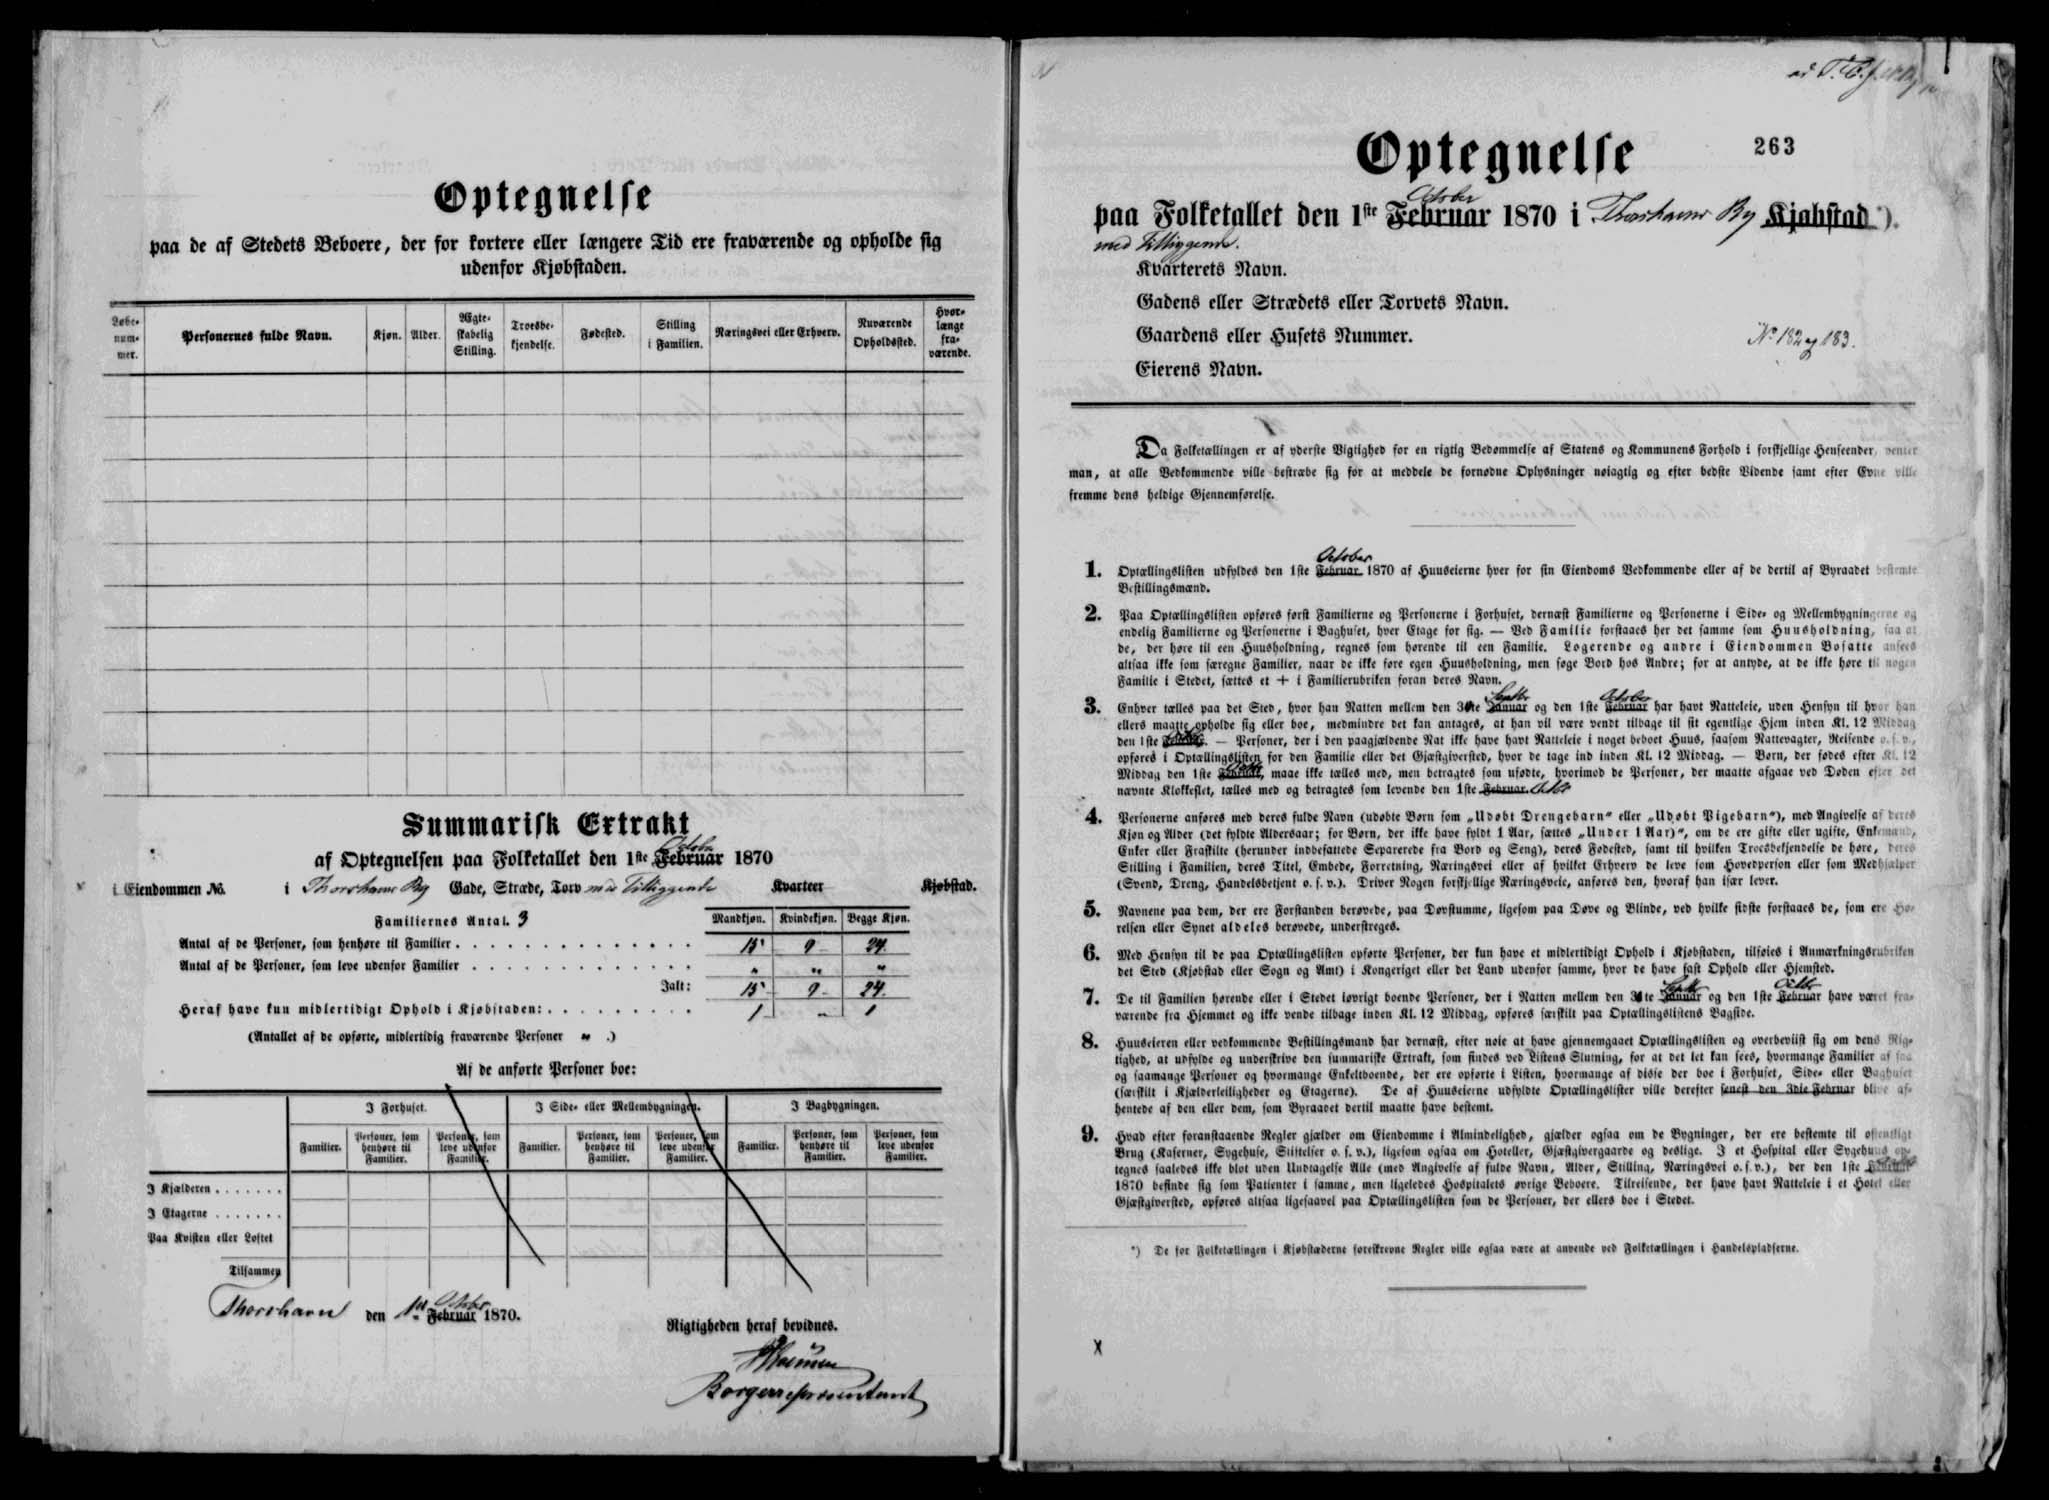 Optegnelse
paa de af Stedets Beboere, der for kortere eller længere Tid ere fraværende og opholde sig
udenfor Kjøbstaden.
Løbe-nummer. Personernes fulde Navn. Kjøn. Alder. Ægteskabelig Stilling. Troesbekjendelse. Fødested. Stilling i Familien. Næringsvei eller Erhverv. Nuværende Opholdssted. Hvorlænge fraværende.
Summarisk Extrakt
October
af Optegnelsen paa Folketallet den 1ste Februar 1870
i Eiendommen No. i Thorshavns By Gade, Stræde, Torv med Tilliggende Kvarteer Kjøbstad.
Familiernes Antal. 3
Mandkjøn. Kvindekjøn. Begge Kjøn.
Antal af de Personer, som henhøre til Familier 15 9 24.
Antal af de Personer, som leve udenfor Familier " " "
Ialt: 15 9 24.
Heraf have kun midlertidigt Ophold i Kjøbstaden: 1 " 1
(Antallet af de opførte, midlertidig fraværende Personer " .)
Af de anførte Personer boe:
I Forhuset. I Side- eller Mellembygningen. I Bagbygningen.
Familier. Personer, som henhøre til Familier. Personer, som leve udenfor Familier. Familier. Personer, som henhøre til Familier. Personer, som leve udenfor Familier. Familier. Personer, som henhøre til Familier. Personer, som leve udenfor Familier.
I Kjælderen
I Etagerne
Paa Kvisten eller Loftet
Tilsammen
Thorshavn den 1ste October Februar 1870.
Rigtigheden heraf bevidnes.
Borgerrepræsentant
263
Optegnelse
October
paa Folketallet den 1ste Februar 1870 i Thorshavns By Kjøbstad *).
med Tilliggende.
Kvarterets Navn.
Gadens eller Strædets eller Torvets Navn.
Gaardens eller Husets Nummer. No 182 og 183.
Eierens Navn.
Da Folketællingen er af yderste Vigtighed for en rigtig Bedømmelse af Statens og Kommunens Forhold i forskjellige Henseender, venter
man, at alle Vedkommende ville bestræbe sig for at meddele de fornødne Oplysninger nøiagtig og efter bedste Vidende samt efter Evne ville
fremme dens heldige Gjennemførelse.
October
1. Optællingslisten udfyldes den 1ste Februar 1870 af Huuseierne hver for sin Eiendoms Vedkommende eller af de dertil af Byraadet bestemte
Bestillingsmænd.
2. Paa Optællingslisten opføres først Familierne og Personerne i Forhuset, dernæst Familierne og Personerne i Side- og Mellembygningerne og
endelig Familierne og Personerne i Baghuset, hver Etage for sig. — Ved Familie forstaaes her det samme som Huusholdning, saa at
de, der høre til een Huusholdning, regnes som hørende til een Familie. Logerende og andre i Eiendommen Bosatte ansees
altsaa ikke som særegne Familier, naar de ikke føre egen Huusholdning, men søge Bord hos Andre; for at antyde, at de ikke høre til nogen
Familie i Stedet, sættes et + i Familierubriken foran deres Navn.
Septbr October
3. Enhver tælles paa det Sted, hvor han Natten mellem den 30te Januar og den 1ste Februar har havt Natteleie, uden Hensyn til hvor han
ellers maatte opholde sig eller boe, medmindre det kan antages, at han vil være vendt tilbage til sit egentlige Hjem inden Kl. 12 Middag
den 1ste Februar. — Personer, der i den paagjældende Nat ikke have havt Natteleie i noget beboet Huus, saasom Nattevagter, Reisende o. s. v.,
opføres i Optællingslisten for den Familie eller det Gjæstgiversted, hvor de tage ind inden Kl. 12 Middag. — Børn, der fødes efter Kl. 12
Middag den 1ste Februar, maae ikke tælles med, men betragtes som ufødte, hvorimod de Personer, der maatte afgaae ved Døden efter det
nævnte Klokkeslet, tælles med og betragtes som levende den 1ste Februar. Octbr
4. Personerne anføres med deres fulde Navn (udøbte Børn som „Udøbt Drengebarn“ eller „Udøbt Pigebarn“), med Angivelse af deres
Kjøn og Alder (det fyldte Aldersaar; for Børn, der ikke have fyldt 1 Aar, sættes „Under 1 Aar)“, om de ere gifte eller ugifte, Enkemænd,
Enker eller Fraskilte (herunder indbefattede Separerede fra Bord og Seng), deres Fødested, samt til hvilken Troesbekjendelse de høre, deres
Stilling i Familien, deres Titel, Embede, Forretning, Næringsvei eller af hvilket Erhverv de leve som Hovedperson eller som Medhjælper
(Svend, Dreng, Handelsbetjent o. s. v.). Driver Nogen forskjellige Næringsveie, anføres den, hvoraf han især lever.
5. Navnene paa dem, der ere Forstanden berøvede, paa Døvstumme, ligesom paa Døve og Blinde, ved hvilke sidste forstaaes de, som ere Hørelsen eller Synet aldeles berøvede, understreges.
6. Med Hensyn til de paa Optællingslisten opførte Personer, der kun have et midlertidigt Ophold i Kjøbstaden, tilføies i Anmærkningsrubriken
det Sted (Kjøbstad eller Sogn og Amt) i Kongeriget eller det Land udenfor samme, hvor de have fast Ophold eller Hjemsted.
Septbr Octbr
7. De til Familien hørende eller i Stedet iøvrigt boende Personer, der i Natten mellem den 30te Januar og den 1ste Februar have været fraværende fra Hjemmet og ikke vende tilbage inden Kl. 12 Middag, opføres særskilt paa Optællingslistens Bagside.
8. Huuseieren eller vedkommende Bestillingsmand har dernæst, efter nøie at have gjennemgaaet Optællingslisten og overbeviist sig om dens Rigtighed, at udfylde og underskrive den summariske Extrakt, som findes ved Listens Slutning, for at det let kan sees, hvormange Familier af saa
og saamange Personer og hvormange Enkeltboende, der ere opførte i Listen, hvormange af disse der boe i Forhuset, Side- eller Baghuset
(særskilt i Kjælderleiligheder og Etagerne). De af Huuseierne udfyldte Optællingslister ville derefter senest den 3die Februar blive afhentede af den eller dem, som Byraadet dertil maatte have bestemt.
9. Hvad efter foranstaaende Regler gjælder om Eiendomme i Almindelighed, gjælder ogsaa om de Bygninger, der ere bestemte til offentligt
Brug (Kaserner, Sygehuse, Stiftelser o. s. v.), ligesom ogsaa om Hoteller, Gjæstgivergaarde og deslige. I et Hospital eller Sygehuus optegnes saaledes ikke blot uden Undtagelse Alle (med Angivelse af fulde Navn, Alder, Stilling, Næringsvei o. s. v.), der den 1ste Februar
1870 befinde sig som Patienter i samme, men ligeledes Hospitalets øvrige Beboere. Tilreisende, der have havt Natteleie i et Hotel eller
Gjæstgiversted, opføres altsaa ligesaavel paa Optællingslisten som de Personer, der ellers boe i Stedet.
*) De for Folketællingen i Kjøbstæderne foreskrevne Regler ville ogsaa være at anvende ved Folketællingen i Handelspladserne.
x